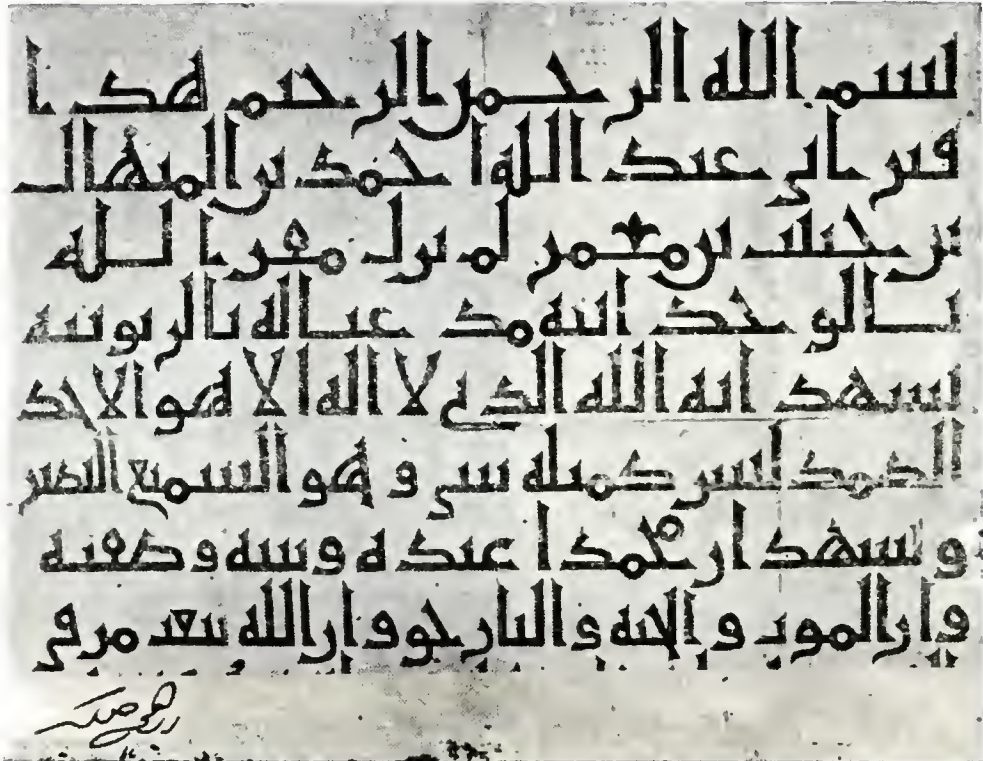 بسم الله الرحمن الرحيم هذا
قبر ابي عبد الله احمد بن المنهال
بن حبيب بن معمر لم يزل مقرا لله
بالوحدانيه مذعنا له بالربوبيه
يشهد انه الله الذي لا اله الا هو الاحد
الصمد ليس كمثله شي وهو السميع البصير
ويشهد ان محمدا عبده ونبيه وصفيه
وان الموت والجنه والنار حق وان الله يبعث من في